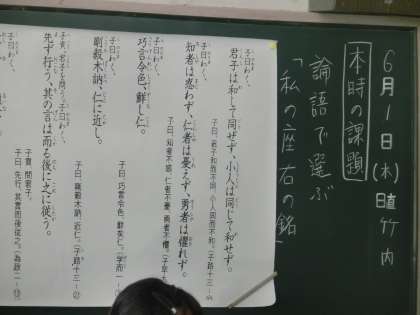 6月1日(木)日直 竹内
本時の課題
論語で選ぶ
「私の座右の銘」
子曰わく、
君子は和して同ぜず、小人は同じて和せず。
子曰、君子和而不同、小人同而不和。（子路十三－
子曰わく、
知者は惑わず、仁者は憂えず、勇者は懼れず。
子曰、知者不惑、仁者不憂、勇者不懼。
子曰わく、
巧言令色、鮮し仁。
子曰、巧言令色、鮮矣仁。（学而一－
子曰わく、
剛毅木訥、仁に近し。
子曰、剛毅木訥、近仁。（子路十三－
子貢、君子を問う。子曰わく、
先ず行う、其の言は而る後に之に従う。
子貢 問君子。
子曰、先行、其言而後従之。（為政二－